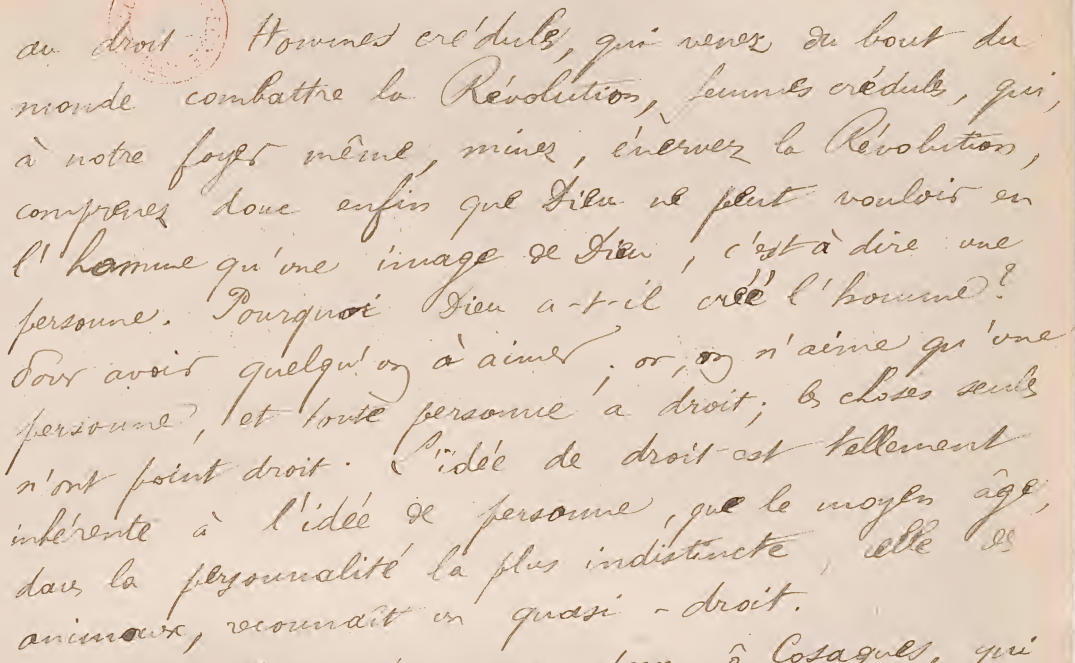 au droit. Hommes crédules, qui venez du bout du
monde combattre la Révolution, femmes crédules, qui,
à notre foyer même, minez, énervez la Révolution,
comprenez donc enfin que Dieu ne peut vouloir en
l'homme qu'une image de Dieu, c'est à dire une
personne. Pourquoi Dieu a-t-il créé l'homme?
Pour avoir quelqu'un à aimer; or, on n'aime qu'une
personne, et toute personne a droit; les choses seules
n'ont point droit. L'idée de droit est tellement
inhérente à l'idée de personne, que le moyen âge,
dans la personnalité la plus indistincte, celle des
animaux, reconnaît un quasi-droit.
ô Cosaques, qui